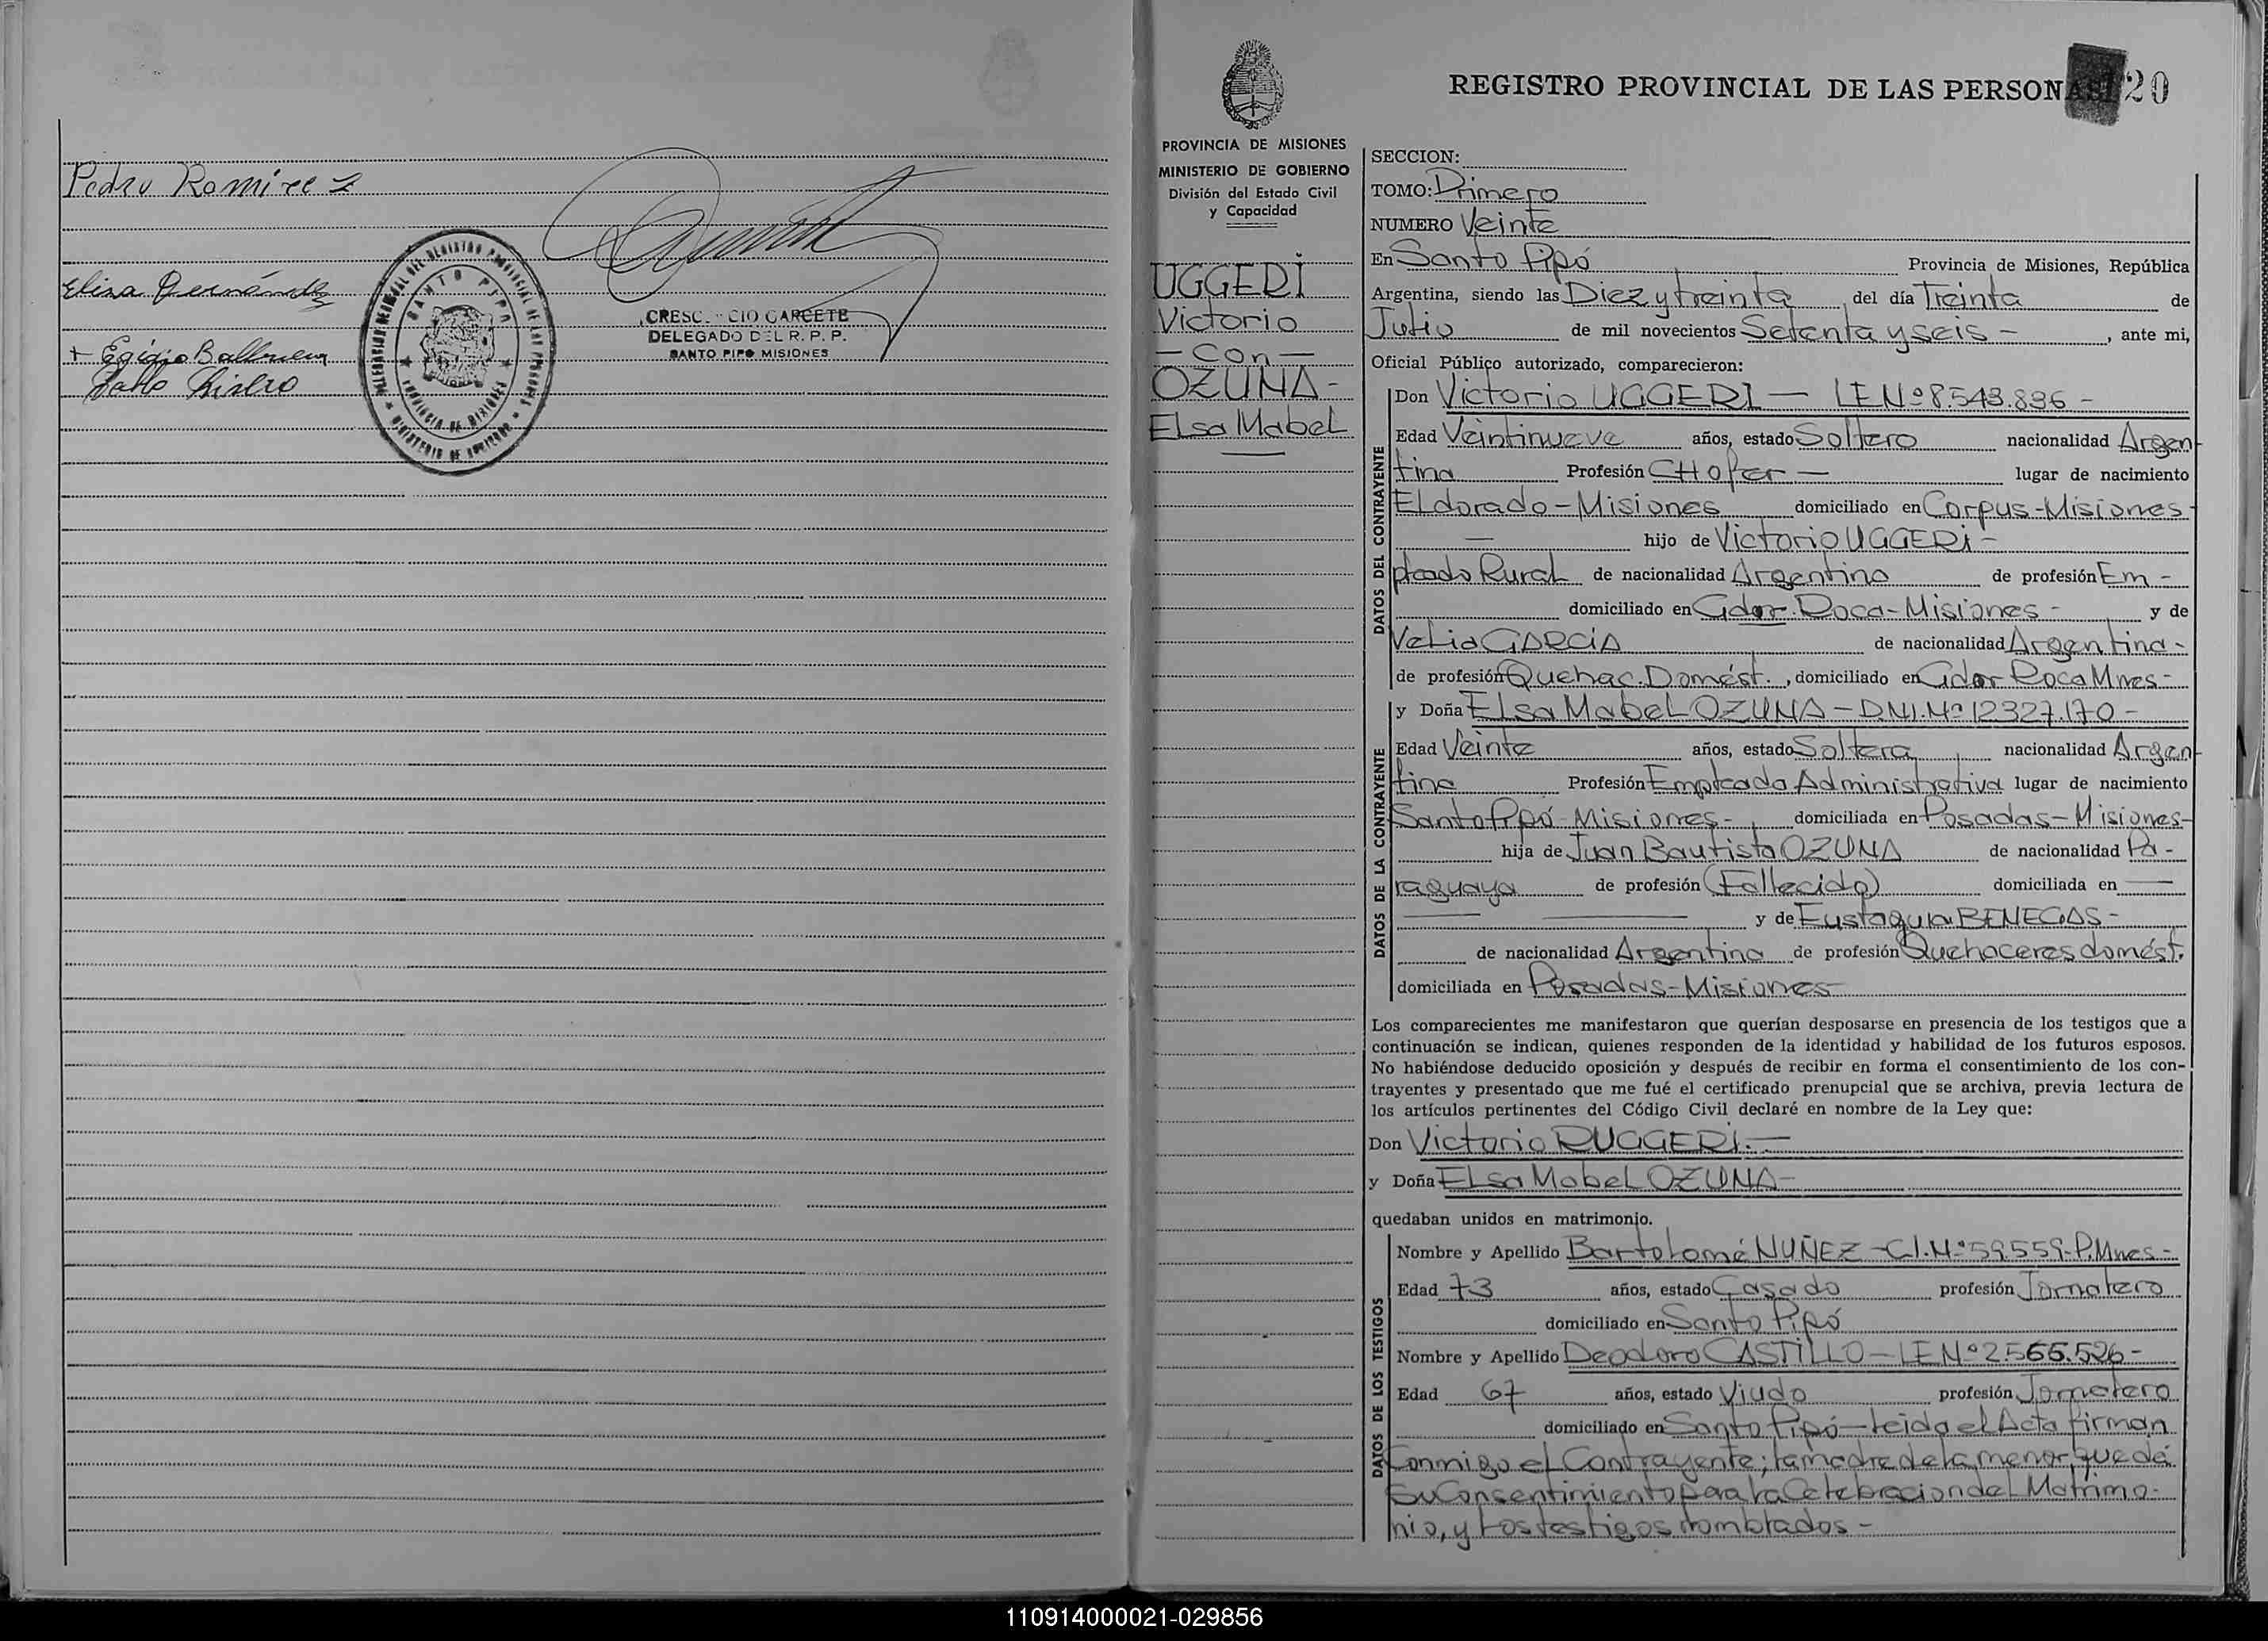 Pedro Ramirez
Elisa Fernández
+ Egidio Balbuena
Pablo
DELEGACION DEL REGISTRO PROVINCIAL DE LAS PERSONAS
SANTO PIPO
PROVINCIA DE MISIONES
MINISTERIO DE GOBIERNO
CRESC CIO GARCETE
DELEGADO DEL R. P. P.
SANTO PIPO MISIONES
PROVINCIA DE MISIONES
MINISTERIO DE GOBIERNO
División del Estado Civil
y Capacidad
UGGERI
Victorio
— Con —
OZUNA -
Elsa Mabel
REGISTRO PROVINCIAL DE LAS PERSONAS
20
SECCION:
TOMO: Primero
NUMERO Veinte
En Santo Pipó Provincia de Misiones, República
Argentina, siendo las Diez y treinta del día Treinta de
Julio de mil novecientos Setenta y seis - , ante mi,
Oficial Público autorizado, comparecieron:
DATOS DEL CONTRAYENTE
Don Victorio UGGERI — LE Nº 8.543.836 -
Edad Veintinueve años, estado Soltero nacionalidad Argen-
tina Profesión CHofer — lugar de nacimiento
Eldorado - Misiones domiciliado en Corpus - Misiones -
— hijo de Victorio UGGERI -
pleado Rural de nacionalidad Argentino de profesión Em -
domiciliado en Gdor. Roca - Misiones - y de
Velia GARCIA de nacionalidad Argentina -
de profesión Quehac. Domést. , domiciliado en Gdor Roca Mnes -
DATOS DE LA CONTRAYENTE
y Doña Elsa Mabel OZUNA - D.N.I. Nº 12327.170 -
Edad Veinte años, estado Soltera nacionalidad Argen-
tina Profesión Empleada Administrativa lugar de nacimiento
Santo Pipó - Misiones - domiciliada en Posadas - Misiones -
hija de Juan Bautista OZUNA de nacionalidad Pa -
raguaya de profesión (Fallecido) domiciliada en —
— — y de Eustaquia BENEGAS -
de nacionalidad Argentina de profesión Quehaceres domést.
domiciliada en Posadas - Misiones
Los comparecientes me manifestaron que querían desposarse en presencia de los testigos que a
continuación se indican, quienes responden de la identidad y habilidad de los futuros esposos.
No habiéndose deducido oposición y después de recibir en forma el consentimiento de los con-
trayentes y presentado que me fué el certificado prenupcial que se archiva, previa lectura de
los artículos pertinentes del Código Civil declaré en nombre de la Ley que:
Don Victorio RUGGERI. —
y Doña Elsa Mabel OZUNA -
quedaban unidos en matrimonio.
DATOS DE LOS TESTIGOS
Nombre y Apellido Bartolomé NUÑEZ - C.I. Nº 59.559 - P. Mnes -
Edad 73 años, estado Casado profesión Jornalero
domiciliado en Santo Pipó
Nombre y Apellido Deodoro CASTILLO - LE Nº 2.565.526 -
Edad 67 años, estado Viudo profesión Jornalero
domiciliado en Santo Pipó - leida el Acta firman
Conmigo el Contrayente; la madre de la menor, que dá
Su Consentimiento para la Celebracion del Matrimo-
nio, y los testigos nombrados -
110914000021-029856